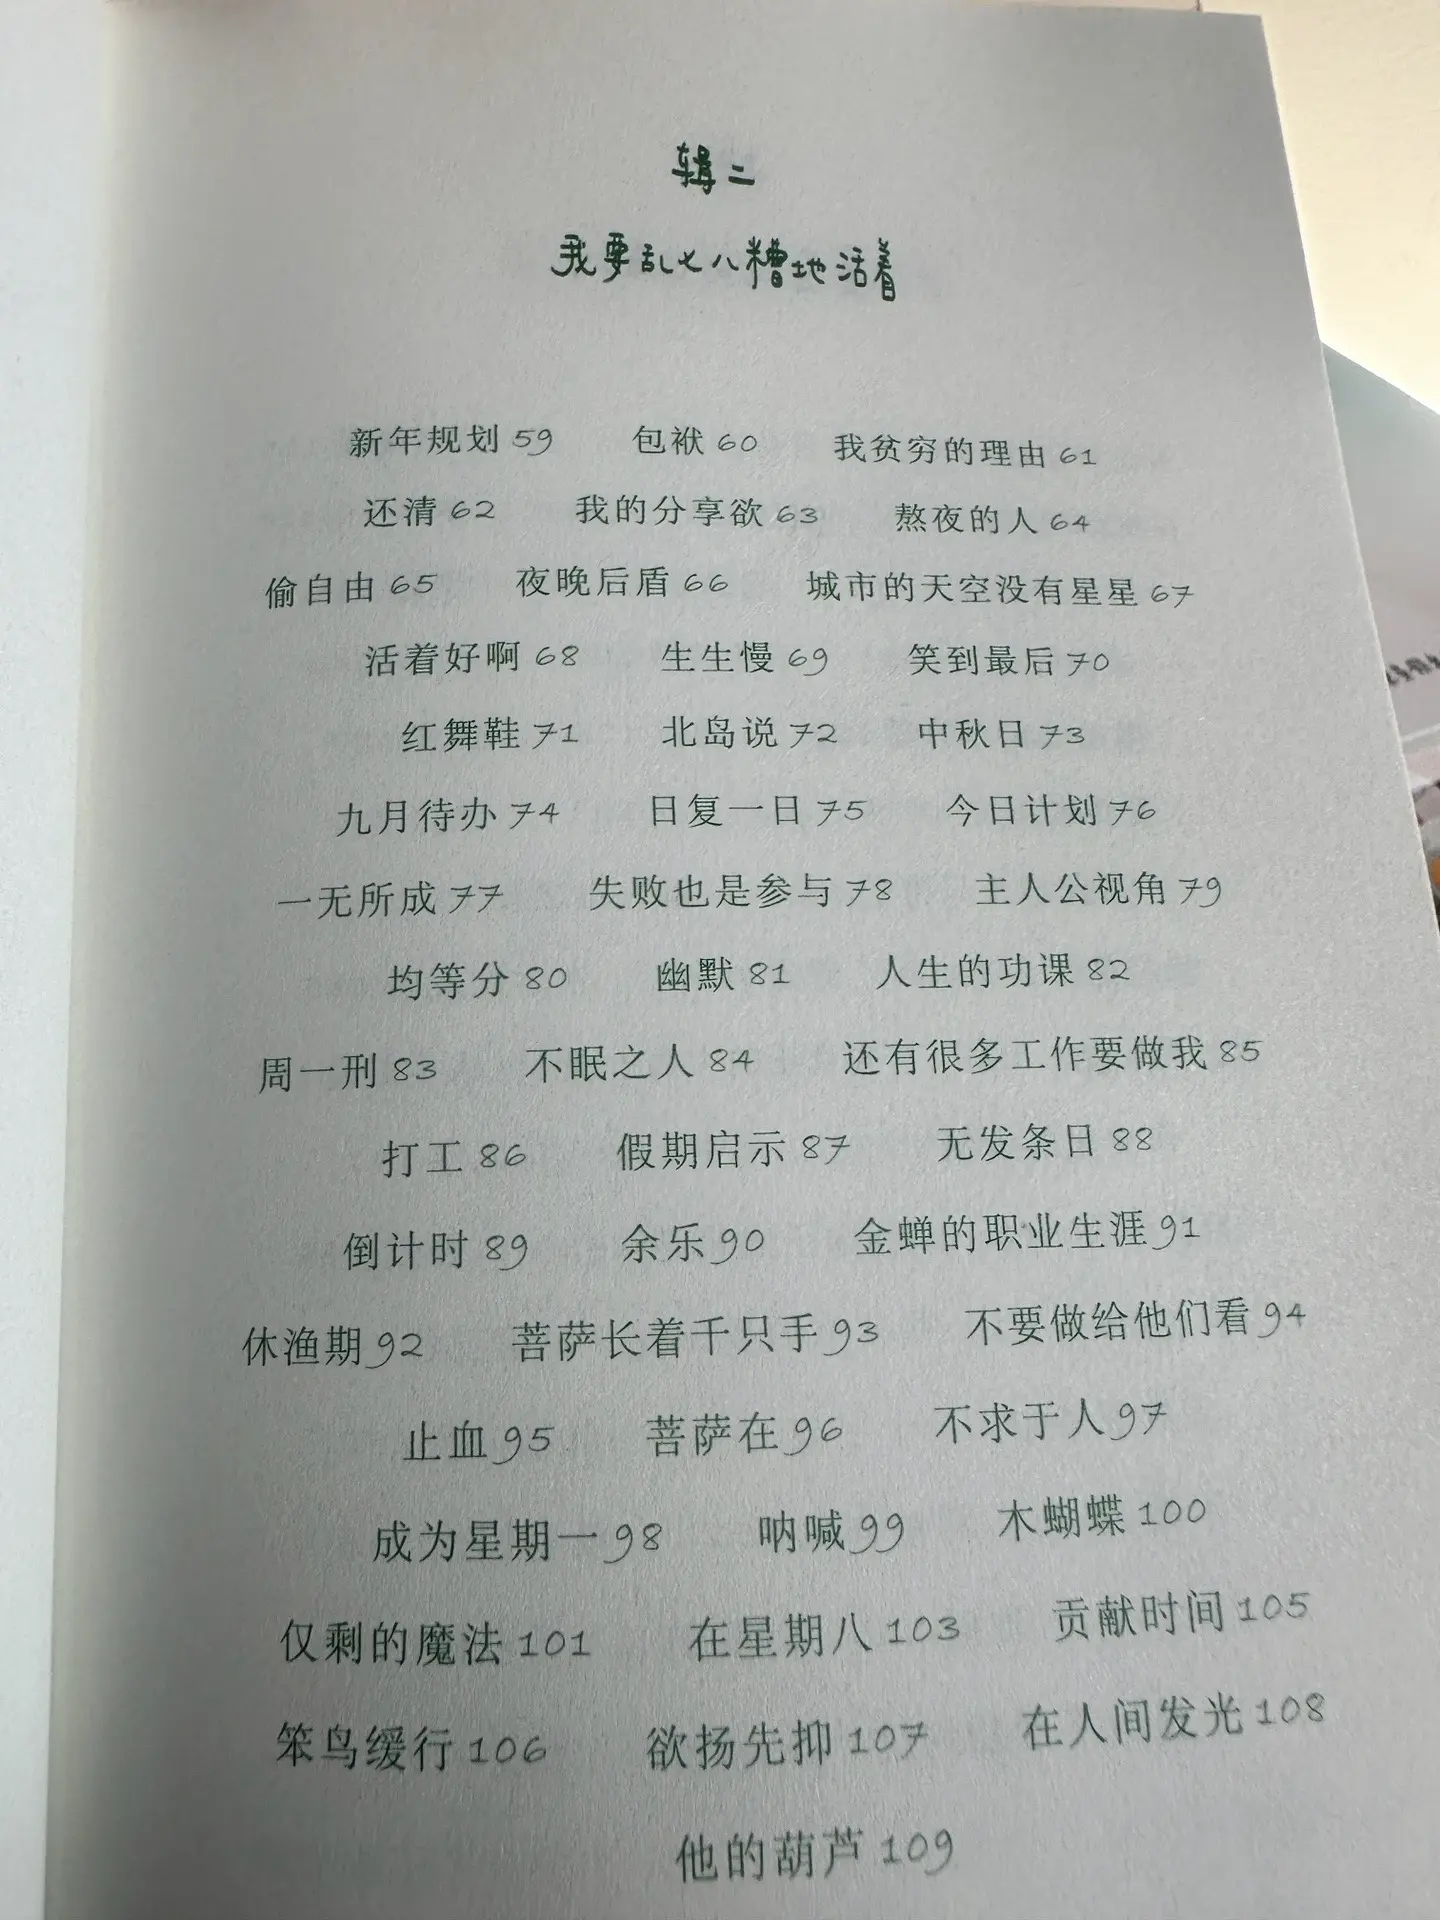 辑二
我要乱七八糟地活着
新年规划 59 包袱 60 我贫穷的理由 61
还清 62 我的分享欲 63 熬夜的人 64
偷自由 65 夜晚后盾 66 城市的天空没有星星 67
活着好啊 68 生生慢 69 笑到最后 70
红舞鞋 71 北岛说 72 中秋日 73
九月待办 74 日复一日 75 今日计划 76
一无所成 77 失败也是参与 78 主人公视角 79
均等分 80 幽默 81 人生的功课 82
周一刑 83 不眠之人 84 还有很多工作要做我 85
打工 86 假期启示 87 无发条日 88
倒计时 89 余乐 90 金蝉的职业生涯 91
休渔期 92 菩萨长着千只手 93 不要做给他们看 94
止血 95 菩萨在 96 不求于人 97
成为星期一 98 呐喊 99 木蝴蝶 100
仅剩的魔法 101 在星期八 103 贡献时间 105
笨鸟缓行 106 欲扬先抑 107 在人间发光 108
他的葫芦 109